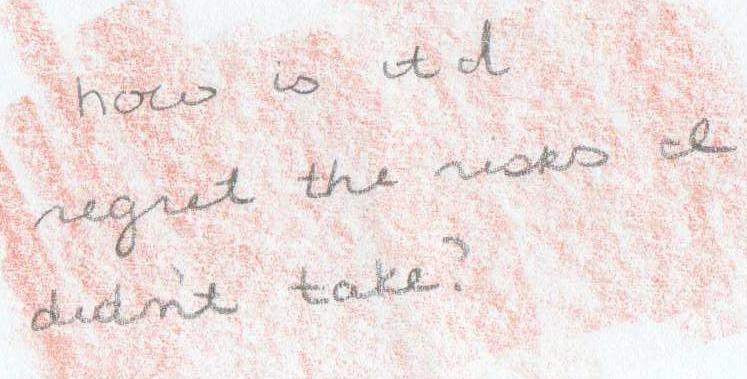 how is it I
regret the risks I
didn't take?